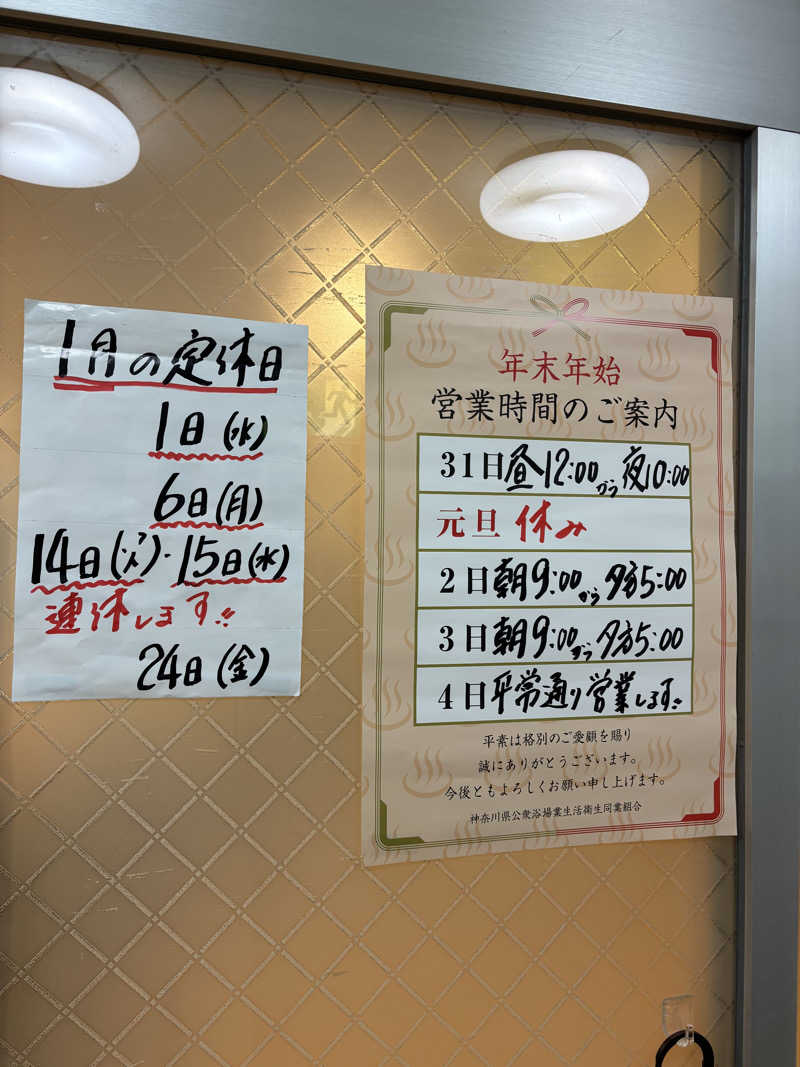 1月の定休日
1日(水)
6日(月)
14日(火)・15日(水)
連休します!!
24日(金)
年末年始
営業時間のご案内
31日昼12:00から夜10:00
元旦 休み
2日朝9:00から夕方5:00
3日朝9:00から夕方5:00
4日平常通り営業します!!
平素は格別のご愛顧を賜り
誠にありがとうございます。
今後ともよろしくお願い申し上げます。
神奈川県公衆浴場業生活衛生同業組合